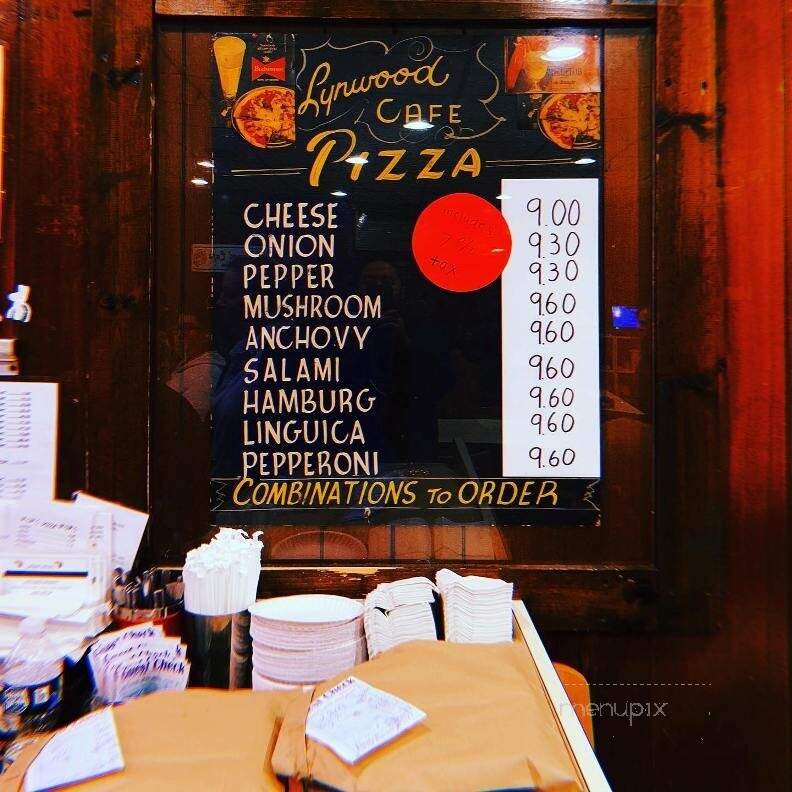 Budweiser
Lynwood
CAFE
PIZZA
CHEESE 9.00
ONION 9.30
PEPPER 9.30
MUSHROOM 9.60
ANCHOVY 9.60
SALAMI 9.60
HAMBURG 9.60
LINGUICA 9.60
PEPPERONI 9.60
includes
7%
tax
COMBINATIONS TO ORDER
Guest Check
menupix